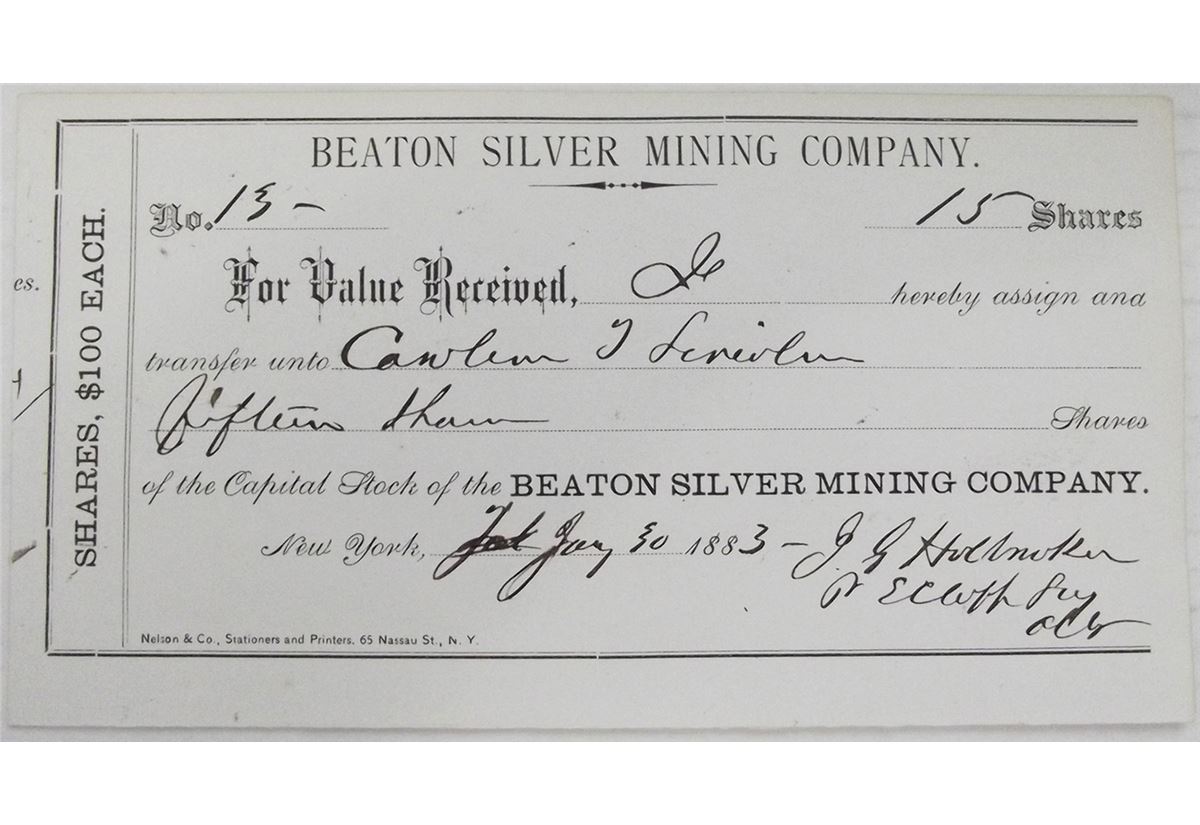 BEATON SILVER MINING COMPANY.
No. 13 -
15 Shares
For Value Received, I hereby assign and
transfer unto
Fifteen Shares
of the Capital Stock of the BEATON SILVER MINING COMPANY.
New York, Jany 30 1883 - J. G
Nelson & Co., Stationers and Printers, 65 Nassau St., N. Y.
SHARES, $100 EACH.
es.